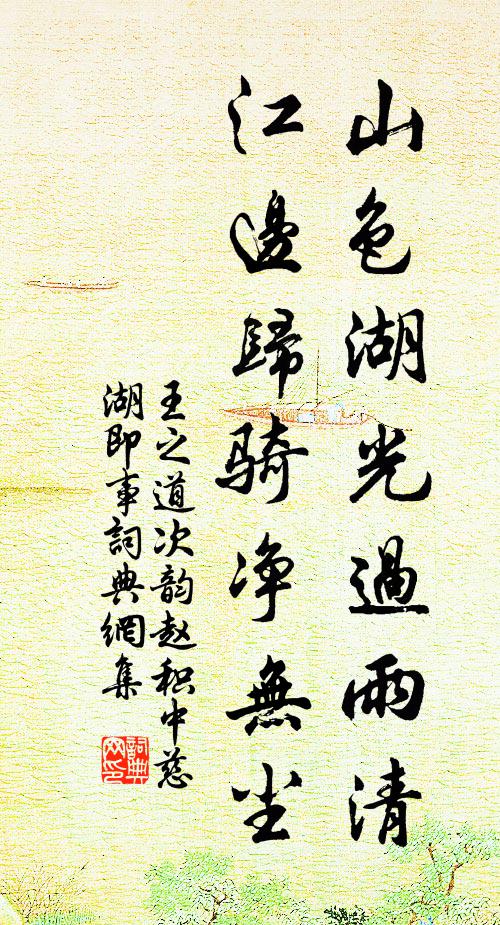 山色湖光過雨清
江邊歸騎净無尘
王之道次韵赵积中慈
湖即事詞典網集
詞典
网印